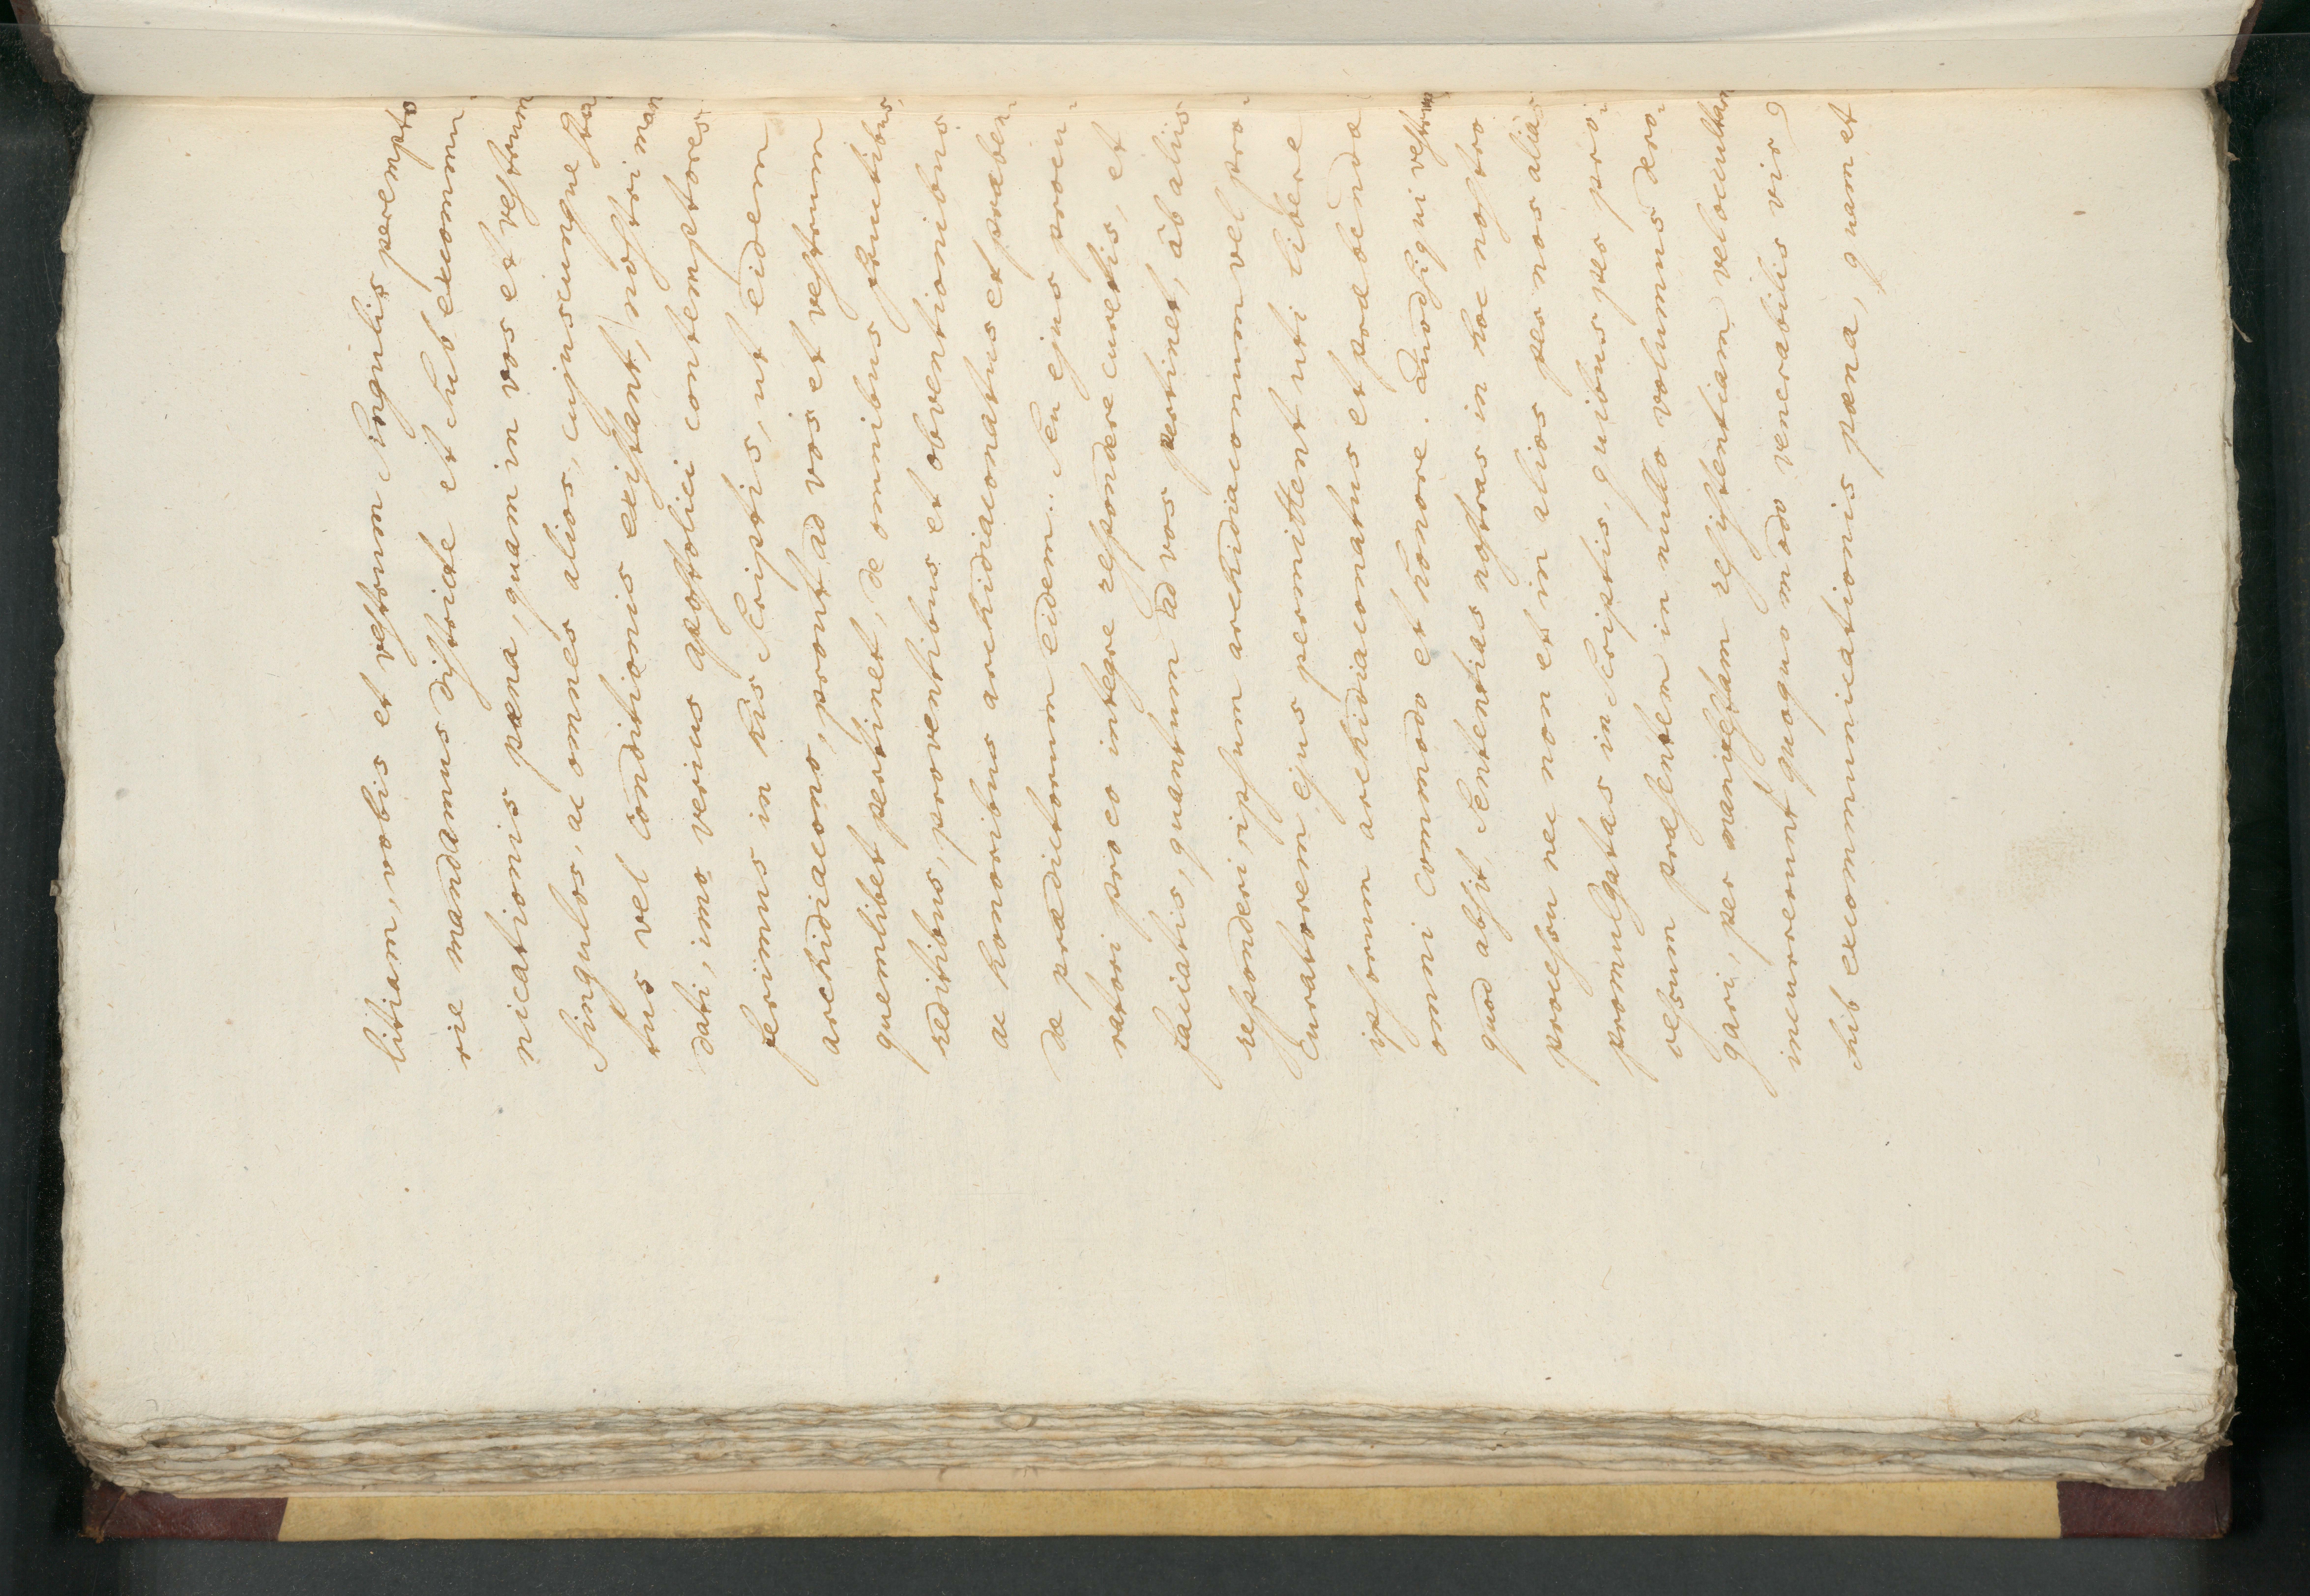 litiam, vobis et vestrum singulis perempto
rie mandamus districte et sub excommu
nicationis pæna, quam in vos et vestrum
singulos, ac omnes alios, cujuscunque sta
tus vel conditionis existant, nostri man
dati, imo verius apostolici contemptores
ferimus in his scriptis, ut eidem
archidiacono, prout ad vos et vestrum
quemlibet pertinet, de omnibus fructibus,
reditibus, proventibus et obventionibus
ac honoribus archidiaconatus et præben
dæ prædictorum eidem: seu ejus procu
ratori pro eo integre respondere curetis, et
faciatis, quantum ad vos pertinet, ab aliis
responderi, ipsum archidiaconum vel pro
curatorem ejus permittent uti libere
ipsorum archidiaconatus et præbendæ
omni commodo et honore. Quodsi qui vestrum
quod absit, sententias nostras in hoc nostro
processu nec non et in alios per nos alias
promulgatas in scriptis, quibus per pro
cessum præsentem in nullo volumus dero
gari, per manifestam resistentiam vel occultam
incurrerunt quoquo modo venerabilis vir
sub excommunicationis pæna, quam et